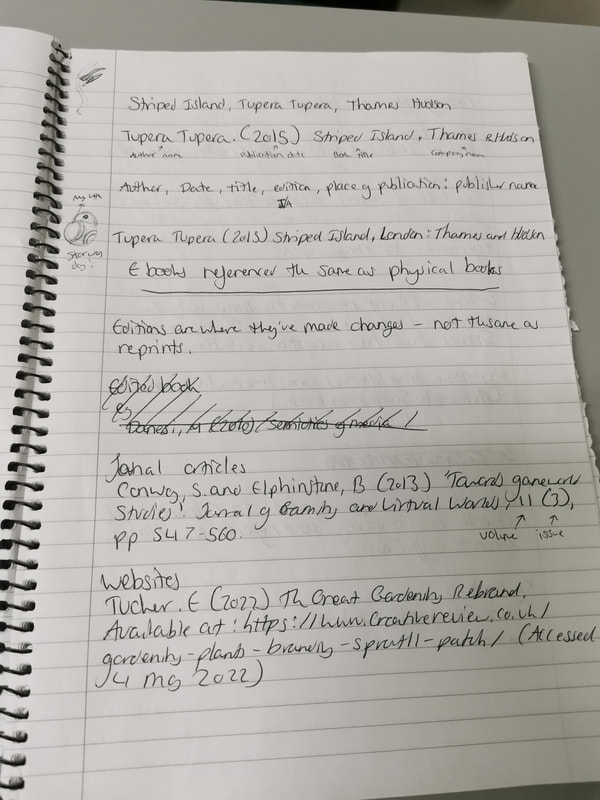 Striped Island, Tupera Tupera, Thames Hudson
Tupera Tupera. (2015) Striped Island, Thames & Hudson
Author name publication date Book title Company name
Author, Date, title, edition, place of publication: publisher name
Tupera Tupera (2015) Striped Island, London: Thames and Hudson
E books referenced the same as physical books
Editions are where they've made changes - not the same as
reprints.
Edited book
Eg
Danesi, M (2010) Semiotics of media /
Jornal articles
Conway, S. and Elphinstone, B (2013) 'Towards gameworld
Studies'. Jornal of Gaming and Virtual Worlds, 11 (3),
pp 547-560.
volume issue
websites
Tucker. E (2022) Th Great Gardening Rebrand,
Available at: https://www.creativereview.co.uk/
gardening-plants-branding-sproutl-patch/ (Accessed
4 may 2022)